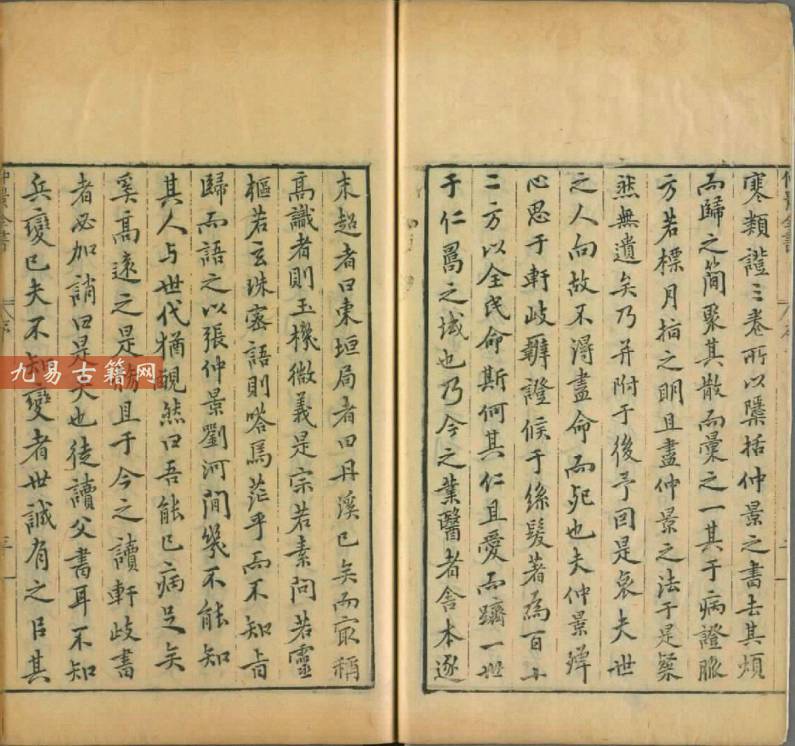 寒類證三卷所以隱括仲景之書去其煩
而歸之簡聚其散而彙之一其于病證脈
方若標月指之明且盡仲景之法于是粲
然無遺矣乃并附于後予因是哀夫世
之人向故不得盡命而死也夫仲景殫
心思于軒岐辨證候于絲髮著為百十
二方以全民命斯何其仁且愛而躋一世
于仁壽之域也乃今之業醫者舍本逐
末超者曰東垣局者曰丹溪已矣而最稱
高識者則玉機微義是宗若素問若靈
樞若玄珠密語則嗒焉茫乎而不知旨
歸而語之以張仲景劉河間幾不能知
其人与世代猶靦然曰吾能已病足矣
奚高遠之是務且于今之讀軒岐書
者必加誚曰是夫也徒讀父書耳不知
兵變已夫不知變者世誠有之以其
仲景全書
序
三
九易古籍网